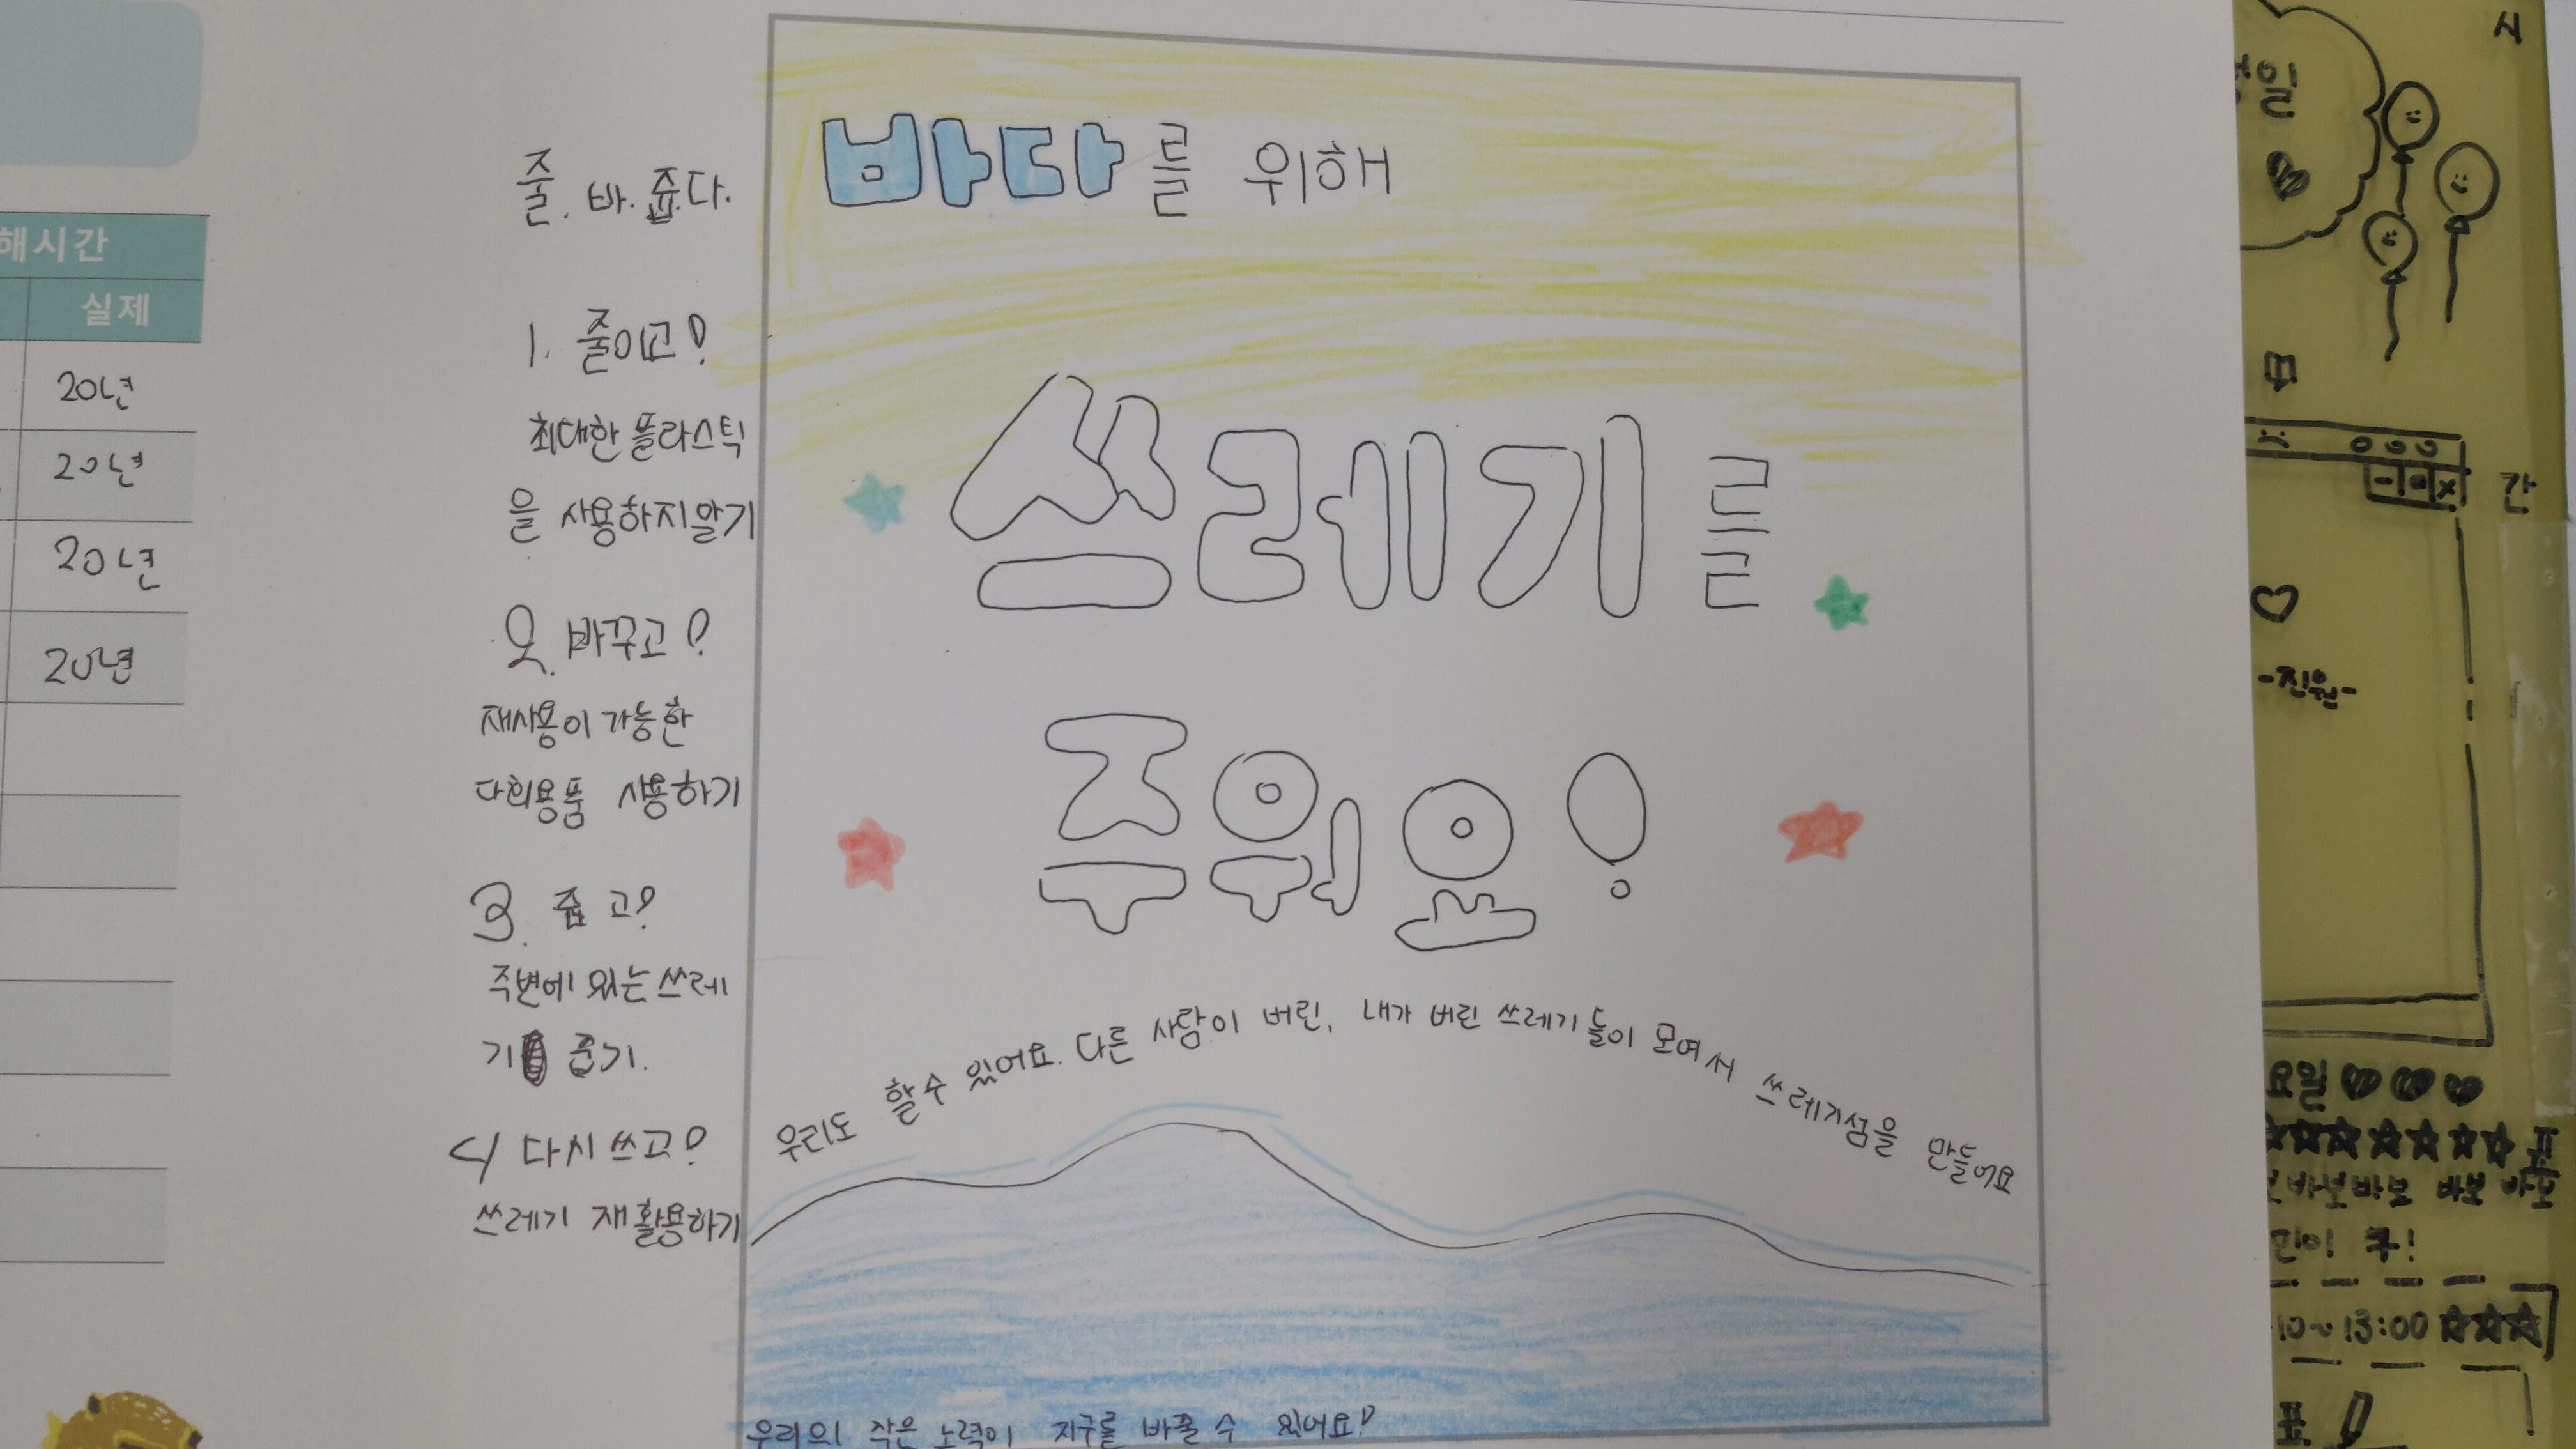 해시간
실제
20년
20년
20년
20년
줄. 바. 줍. 다.
1. 줄이고!
최대한 플라스틱
을 사용하지말기
2. 바꾸고!
재사용이 가능한
다회용품 사용하기
3. 줍고!
주변에 있는 쓰레
기 줍기.
4 다시쓰고!
쓰레기 재활용하기
바다를 위해
쓰레기를
주워요!
우리도 할 수 있어요. 다른 사람이 버린, 내가 버린 쓰레기들이 모여서 쓰레기섬을 만들어요
우리의 작은 노력이 지구를 바꿀 수 있어요!
시
일
간
-진원-
요일
표
바보바보 바보 바보
린이 꾸!
10~13:00
표